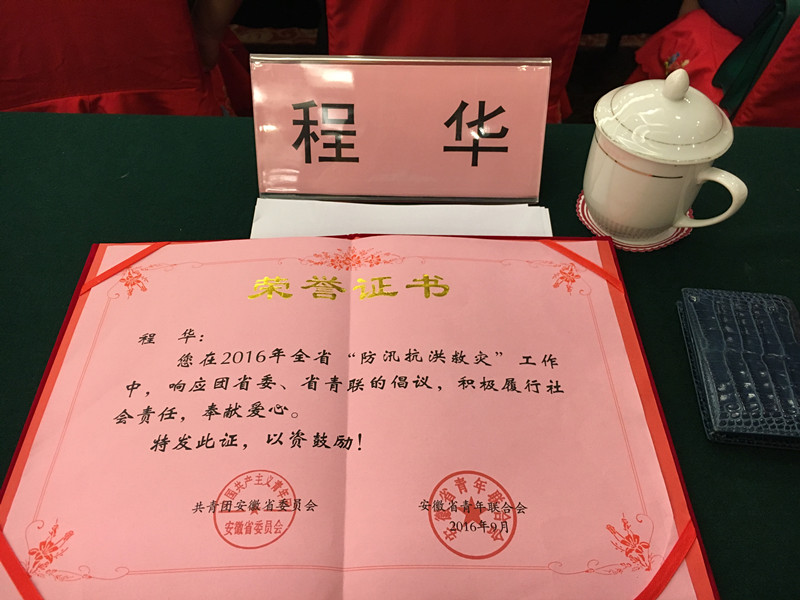 程 华
荣誉证书
程 华：
您在2016年全省“防汛抗洪救灾”工作
中，响应团省委、省青联的倡议，积极履行社
会责任，奉献爱心。
特发此证，以资鼓励！
共青团安徽省委员会
安徽省青年联合会
2016年9月
中国共产主义青年团
安徽省委员会
安徽省青年联合会